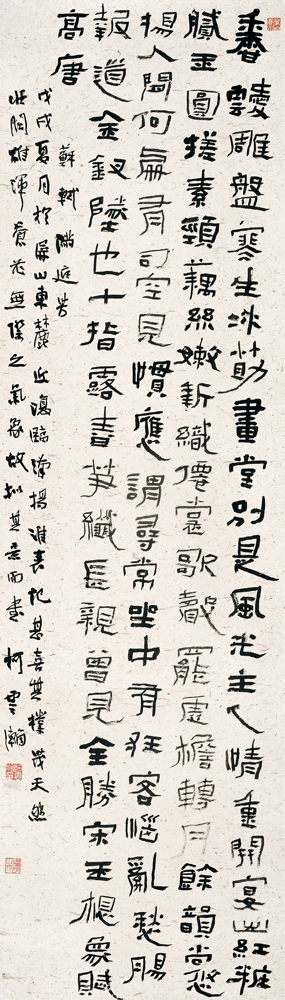 香靉雕盤寒生冰箸畫堂別是風光主人情重開宴出紅粧
膩玉圓搓素頸藕絲嫩新織僊裳歌聲罷虛檐轉月餘韻尚悠
揚人間何處有司空見慣應謂尋常坐中有狂客惱亂愁腸
報道金釵墜也十指露春笋纖長親曾見全勝宋玉想象賦
高唐
蘇軾 滿庭芳
戊戌夏月於屏山東麓近復臨漢楊淮表記甚喜其樸茂天然
雄渾蒼茫無之氣象故擬其意而書 柯雲瀚